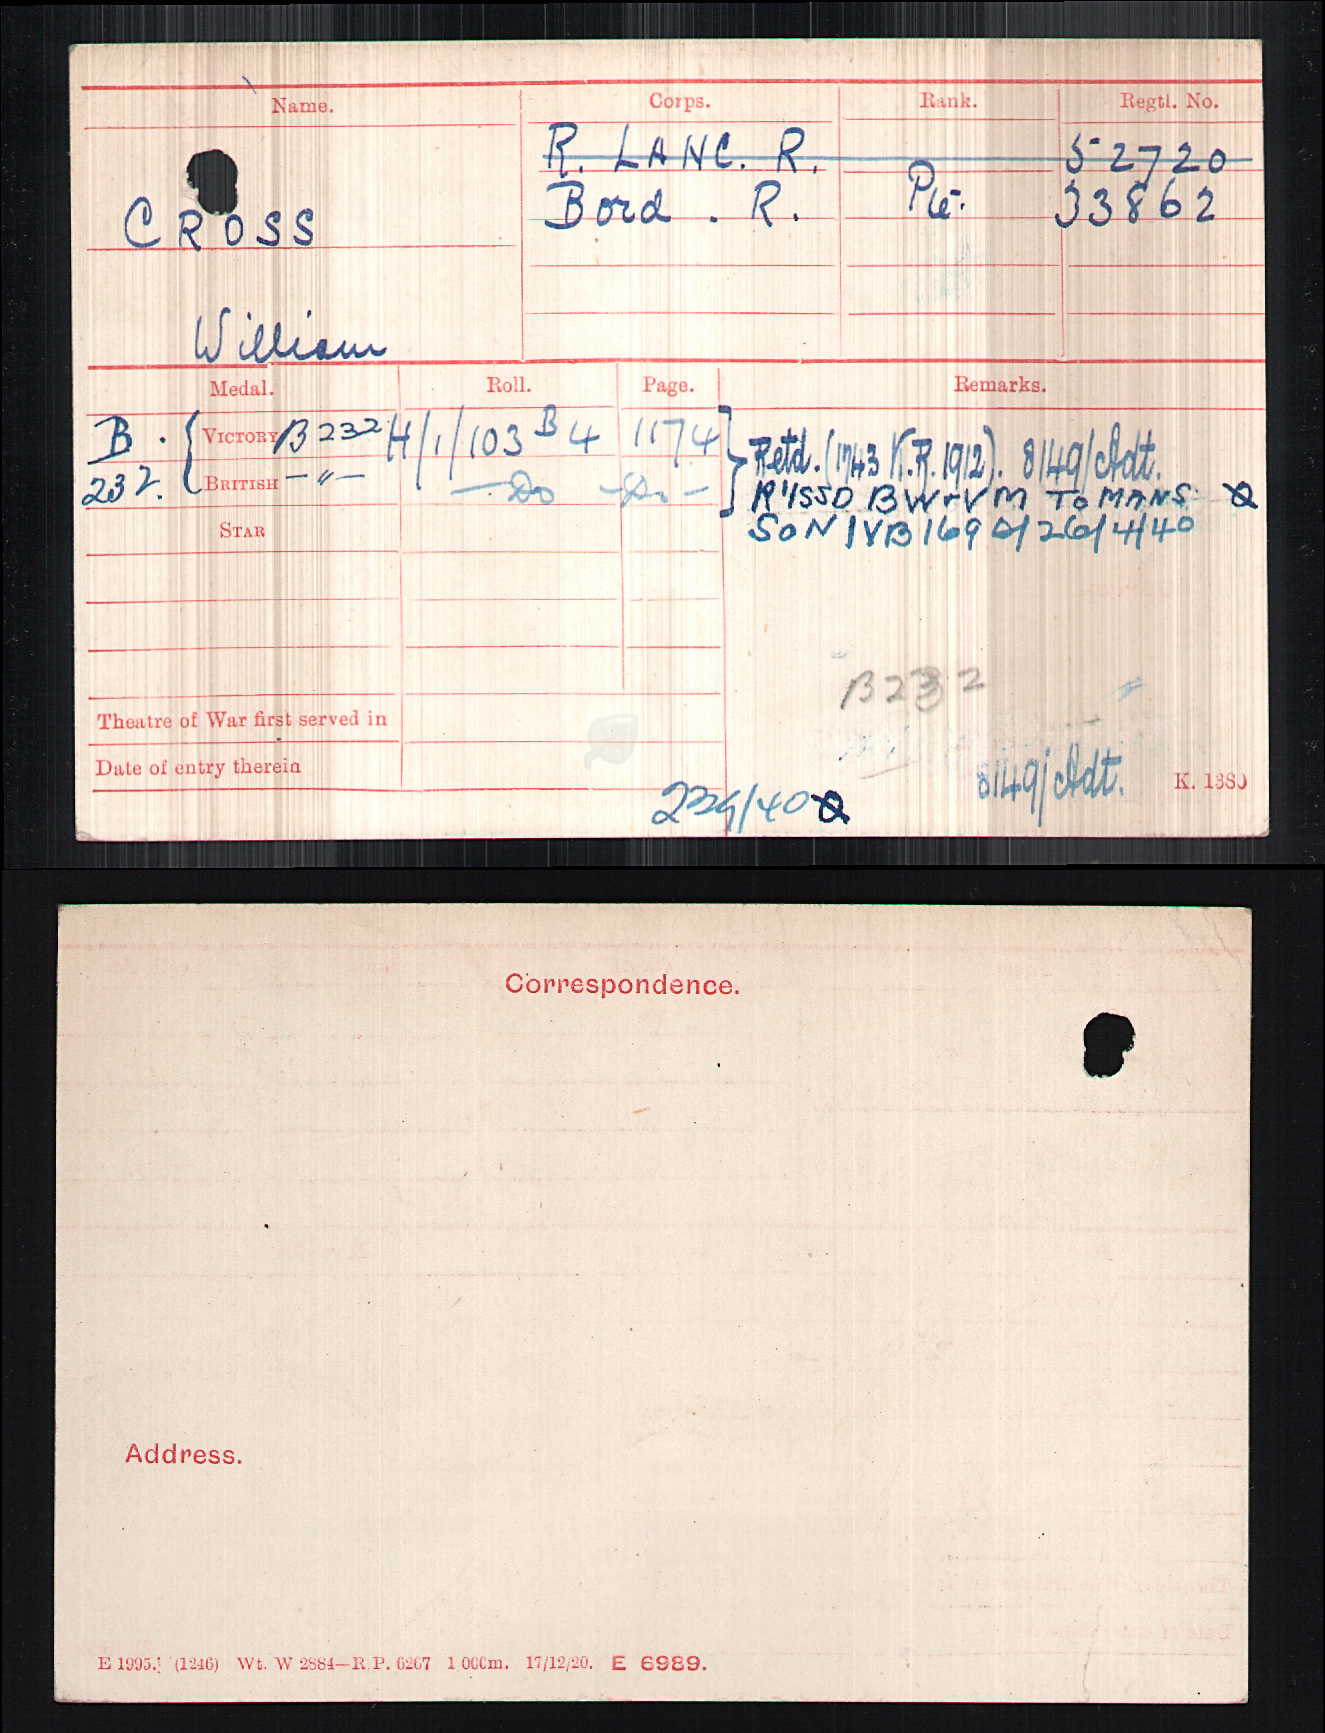 Name. Corps. Rank. Regtl. No.
R. LANC. R. 52720
CROSS Bord. R. Pte. 33862
William
Medal. Roll. Page. Remarks.
B. 232. { VICTORY B 232 H/1/103 B4 1174 } Retd. (1743 K.R. 1912). 8149/Adt.
BRITISH —〃— — Do — Do — R'ISSD BW+VM TO MANS
STAR SON 1VB 169 D/26/4/40
B232
Theatre of War first served in
Date of entry therein
8149/Adt. K. 1380
239/40
Correspondence.
Address.
E 1995. (1246) Wt. W 2884—R.P. 6267 1 000m. 17/12/20. E 6989.